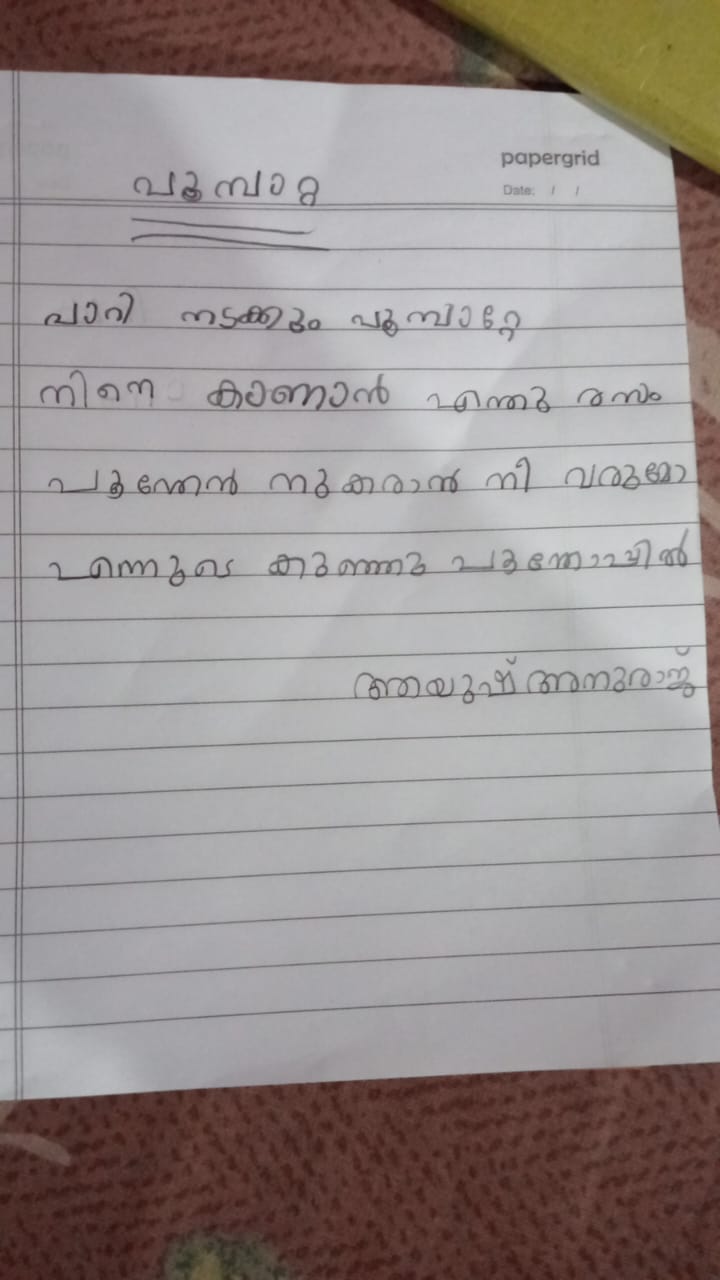 papergrid
Date: / /
പൂമ്പാറ്റ
പാറി നടക്കും പൂമ്പാറ്റേ
നിന്നെ കാണാൻ എന്തു രസം
പൂന്തേൻ നുകരാൻ നീ വരുമോ
എന്നുടെ കുഞ്ഞു പൂന്തോപ്പിൽ
ആയുഷ് അനുരാജ്